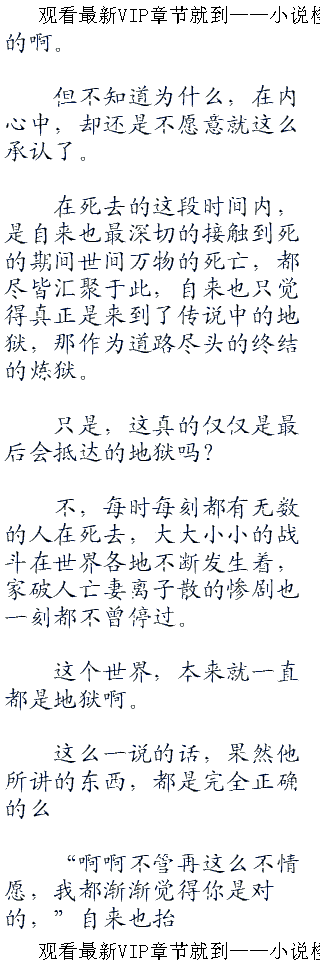 观看最新VIP章节就到——小说
的啊。
但不知道为什么，在内
心中，却还是不愿意就这么
承认了。
在死去的这段时间内，
是自来也最深切的接触到死
的期间世间万物的死亡，都
尽皆汇聚于此，自来也只觉
得真正是来到了传说中的地
狱，那作为道路尽头的终结
的炼狱。
只是，这真的仅仅是最
后会抵达的地狱吗？
不，每时每刻都有无数
的人在死去，大大小小的战
斗在世界各地不断发生着，
家破人亡妻离子散的惨剧也
一刻都不曾停过。
这个世界，本来就一直
都是地狱啊。
这么一说的话，果然他
所讲的东西，都是完全正确
的么
“啊啊不管再这么不情
愿，我都渐渐觉得你是对
的，”自来也抬
观看最新VIP章节就到——小说